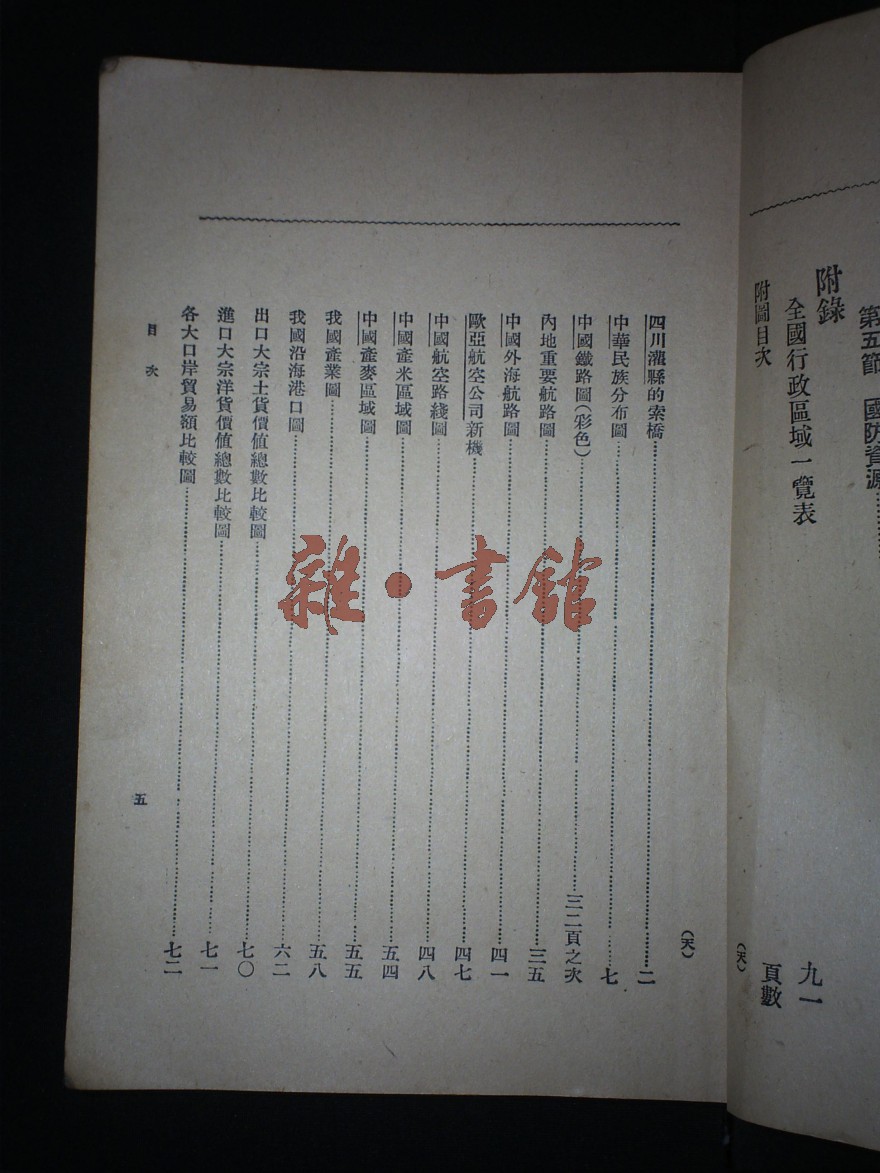 第五節　國防資源
附錄
全國行政區域一覽表　九一
附圖目次　頁數
(天)
(天)
四川灌縣的索橋　二
中華民族分布圖　七
中國鐵路圖(彩色)　三二頁之次
內地重要航路圖　三五
中國外海航路圖　四一
歐亞航空公司新機　四七
中國航空路綫圖　四八
中國產米區域圖　五四
中國產麥區域圖　五五
我國產業圖　五八
我國沿海港口圖　六二
出口大宗土貨價值總數比較圖　七〇
進口大宗洋貨價值總數比較圖　七一
各大口岸貿易額比較圖　七二
目次
五
雜·書館